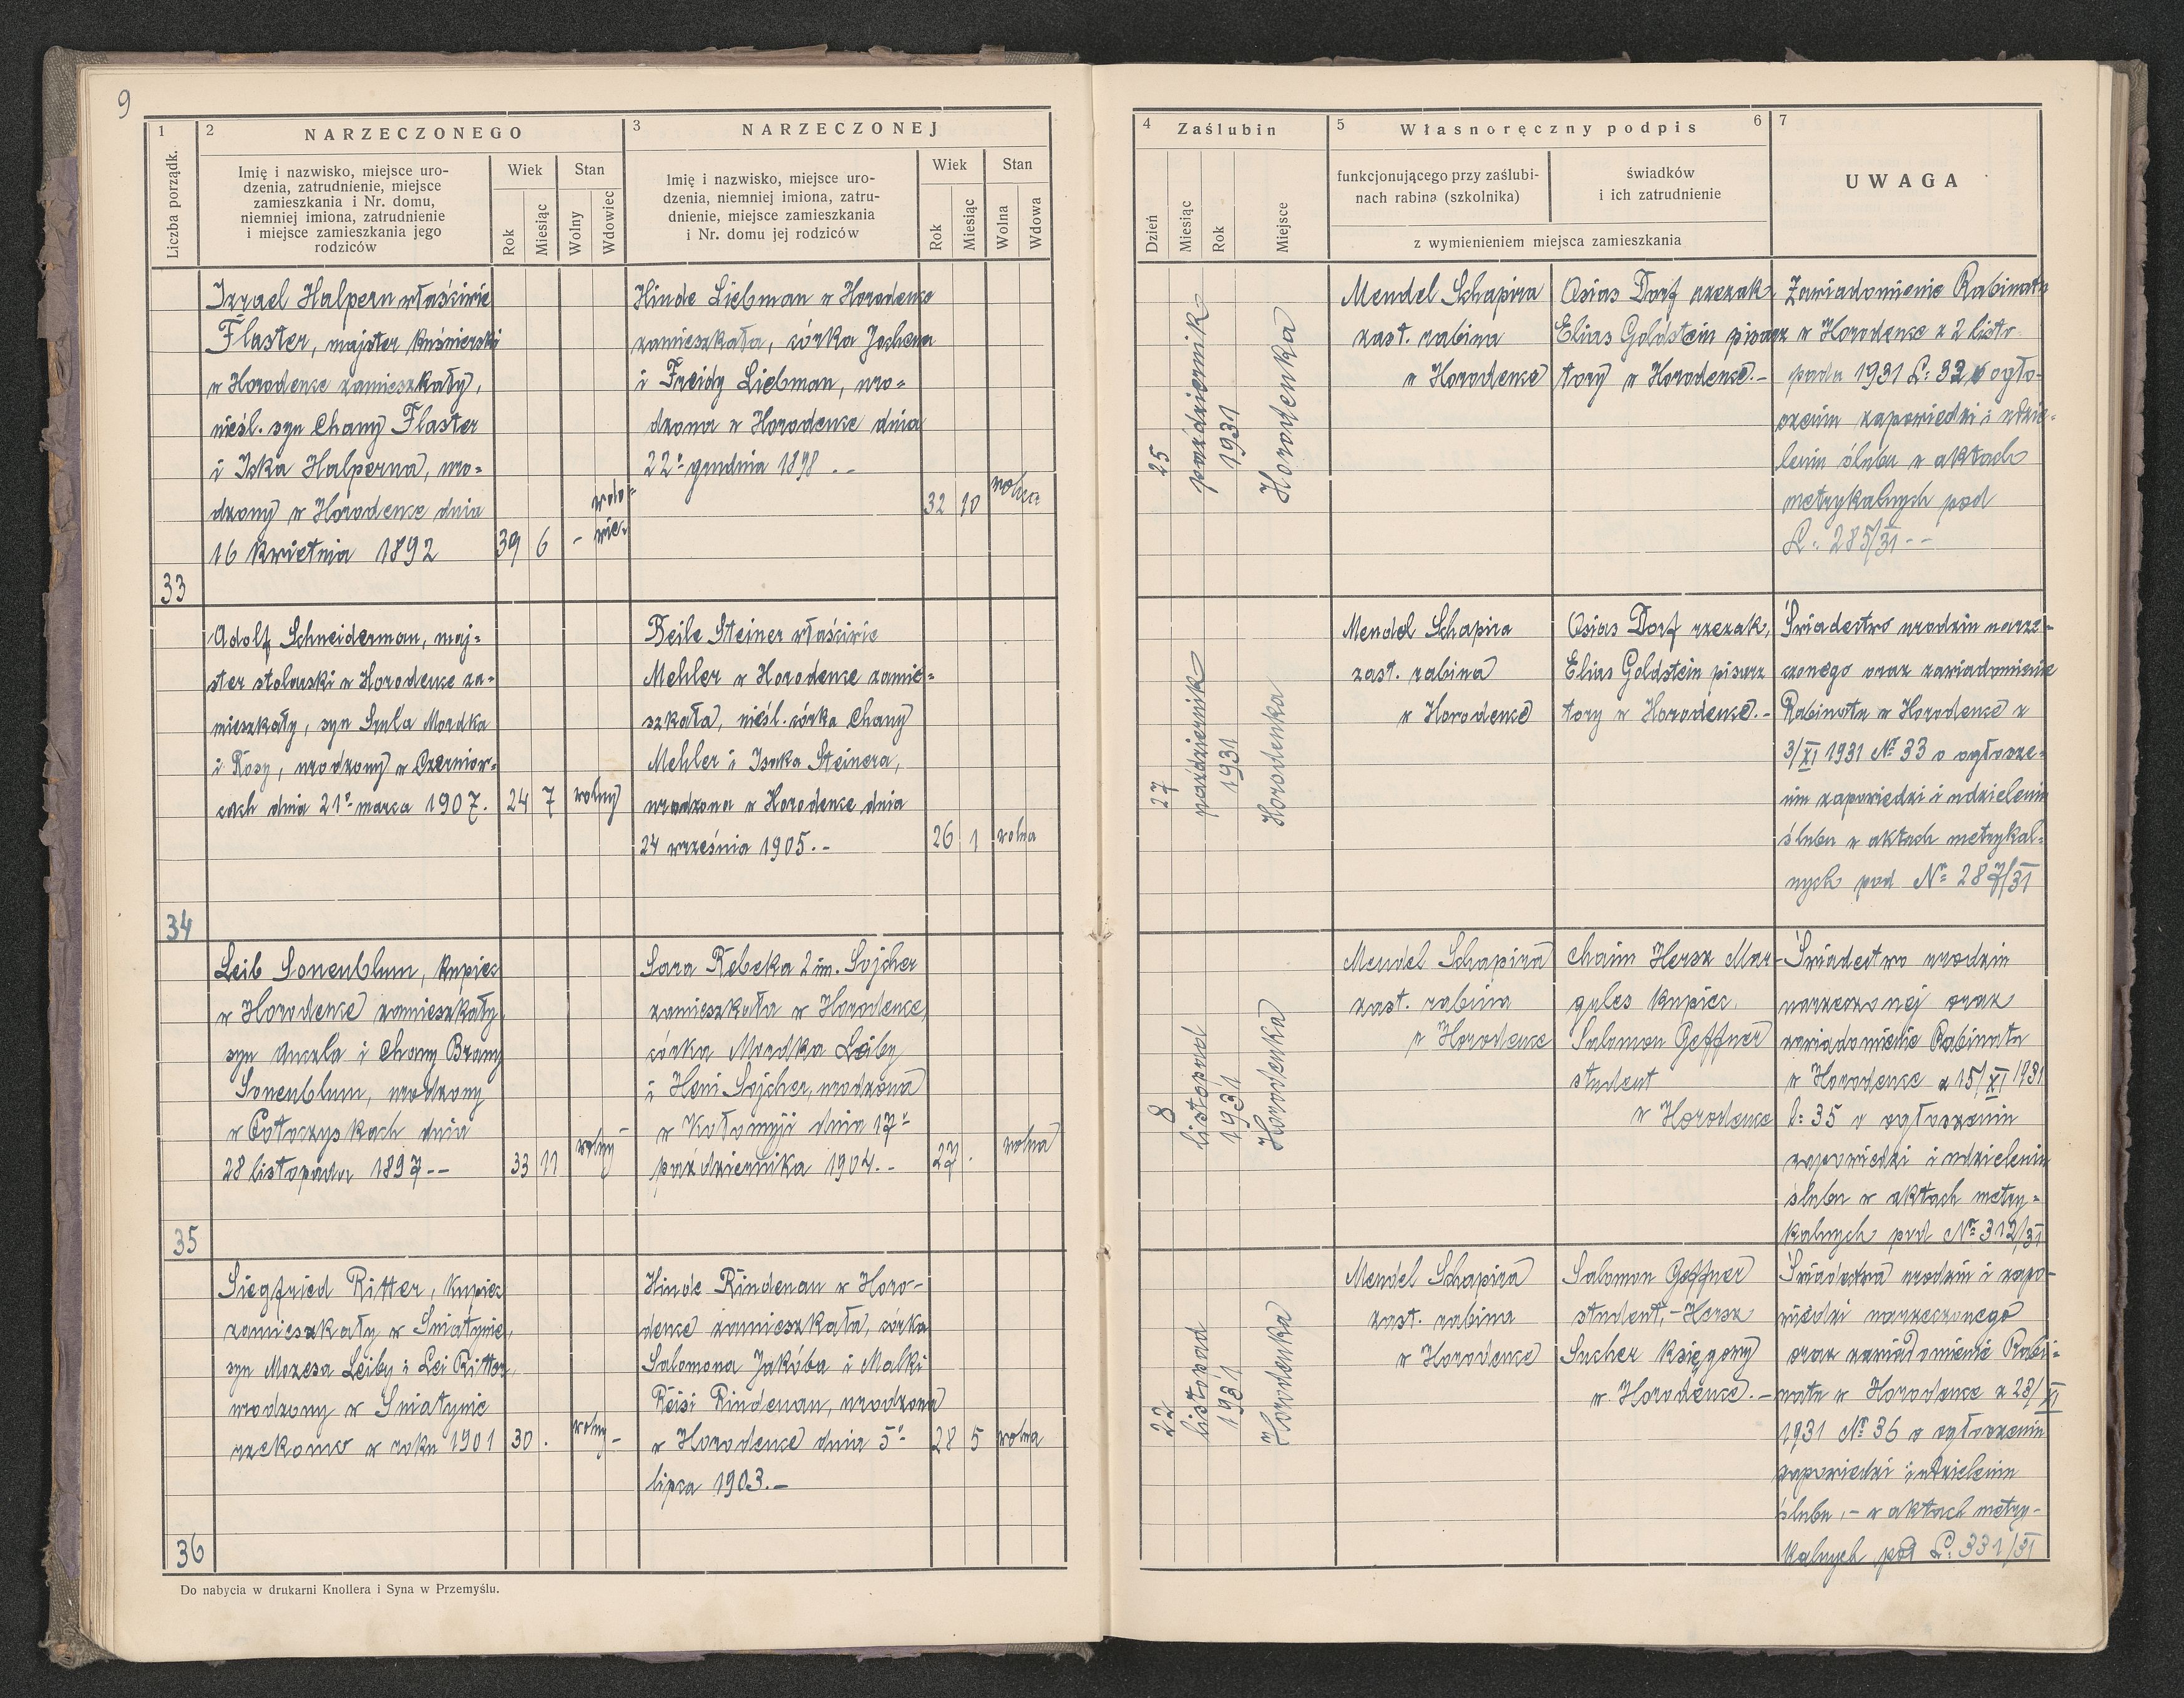 9
1
2
NARZECZONEGO
3
NARZECZONEJ
Liczba porządk.
Imię i nazwisko, miejsce uro-
dzenia, zatrudnienie, miejsce
zamieszkania i Nr. domu,
niemniej imiona, zatrudnienie
i miejsce zamieszkania jego
rodziców
Wiek
Rok
Miesiąc
Stan
Wolny
Wdowiec
Imię i nazwisko, miejsce uro-
dzenia, niemniej imiona, zatru-
dnienie, miejsce zamieszkania
i Nr. domu jej rodziców
Wiek
Rok
Miesiąc
Stan
Wolna
Wdowa
33
Izrael Halpern właściwie
Flaster, majster kuśnierski
w Horodence zamieszkały,
nieśl. syn Chany Flaster
i Iska Halperna, uro-
dzony w Horodence dnia
16 kwietnia 1892
39
6
-
wdo-
wie-
Hinde Liebman w Horodence
zamieszkała, córka Jochena
i Freidy Liebman, uro-
dzona w Horodence dnia
22º grudnia 1898 .-
32
10
wolna
34
Adolf Schneiderman, maj-
ster stolarski w Horodence za-
mieszkały, syn Srula Mordka
i Rosy, urodzony w Czerniow-
cach dnia 21º marca 1907.
24
7
wolny
Beile Steiner właściwie
Mehler w Horodence zamie-
szkała, nieśl. córka Chany
Mehler i Isaka Steinera,
urodzona w Horodence dnia
24 września 1905.-
26
1
wolna
35
Leib Sonenblum, kupiec
w Horodence zamieszkały,
syn Anczla i Chany Brany
Sonenblum, urodzony
w Potoczyskach dnia
28 listopada 1897--
33
11
wolny
Sara Rebeka 2 im. Sojcher
zamieszkała w Horodence,
córka Mordka Leiby
i Heni Sojcher, urodzona
w Kołomyji dnia 17º
października 1904.-
27
.
wolna
36
Siegfried Ritter, kupiec
zamieszkały w Śniatynie,
syn Mozesa Leiby i Lei Ritter,
urodzony w Śniatynie
rzekomo w roku 1901
30
.
wolny-
Hinde Rindenau w Horo-
dence zamieszkała, córka
Salomona Jakóba i Malki
Reisi Rindenau, urodzona
w Horodence dnia 5º
lipca 1903.-
28
5
wolna
Do nabycia w drukarni Knollera i Syna w Przemyślu.
4
Zaślubin
5
Własnoręczny podpis
6
7
Dzień
Miesiąc
Rok
Miejsce
funkcjonującego przy zaślubi-
nach rabina (szkolnika)
świadków
i ich zatrudnienie
z wymienieniem miejsca zamieszkania
UWAGA
25
październik
1931
Horodenka
Mendel Schapira
zast. rabina
w Horodence
Osias Dorf rzezak,
Elias Goldstein pisarz
tory w Horodence.-
Zawiadomienie Rabinatu
w Horodence z 2 listo-
pada 1931 L: 32 o ogło-
szeniu zapowiedzi i udzie-
leniu ślubu w aktach
metrykalnych pod
L: 285/31--
27
październik
1931
Horodenka
Mendel Schapira
zast. rabina
w Horodence
Osias Dorf rzezak,
Elias Goldstein pisarz
tory w Horodence.-
Świadectwo urodzin narze-
czonego oraz zawiadomienie
Rabinatu w Horodence z
3/XI 1931 Nº 33 o ogłosze-
niu zapowiedzi i udzieleniu
ślubu w aktach metrykal-
nych pod Nº 287/31
8
listopad
1931
Horodenka
Mendel Schapira
zast. rabina
w Horodence
Chaim Hersz Mar-
gules kupiec,
Salomon Geffner
student
w Horodence
Świadectwo urodzin
narzeczonej oraz
zawiadomienie Rabinatu
w Horodence z 15/XI 1931
L: 35 o ogłoszeniu
zapowiedzi i udzieleniu
ślubu w aktach metry-
kalnych pod Nº 312/31
22
listopad
1931
Horodenka
Mendel Schapira
zast. rabina
w Horodence
Salomon Geffner
student,- Hersz
Sucher księgowy
w Horodence.-
Świadectwa urodzin i zapo-
wiedzi narzeczonego
oraz zawiadomienie Rabi-
natu w Horodence z 23/XI
1931 Nº 36 o ogłoszeniu
zapowiedzi i udzieleniu
ślubu,- w aktach metry-
kalnych pod L: 331/31